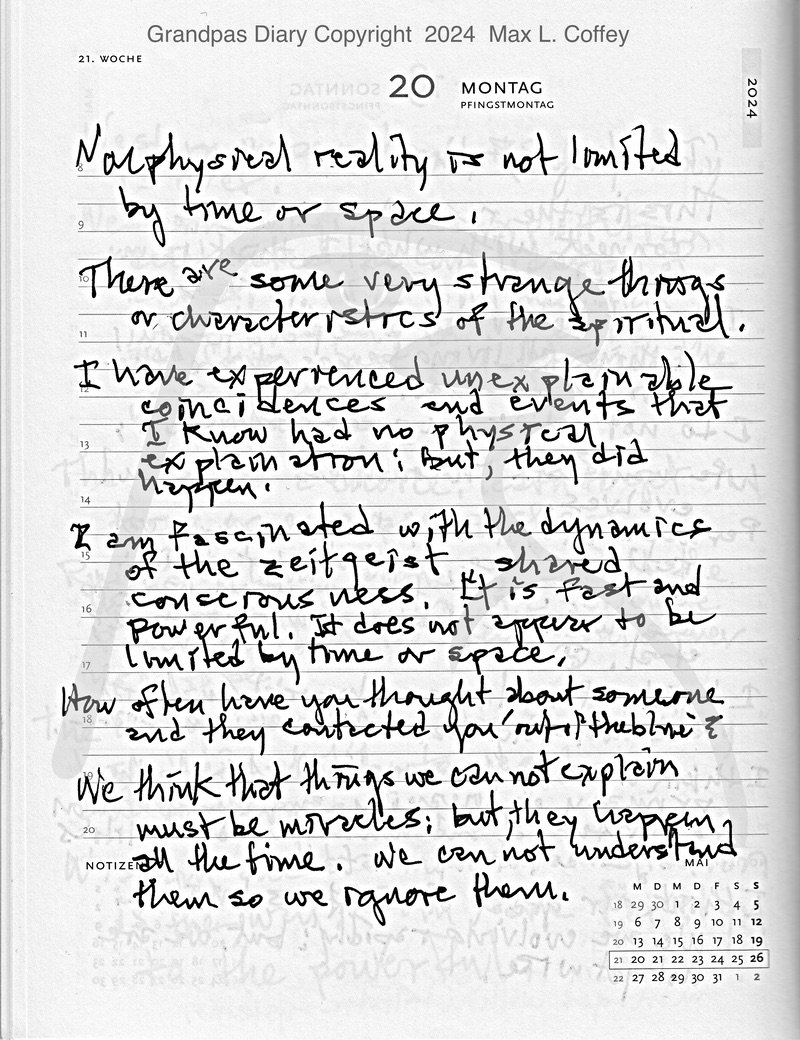 Grandpas Diary Copyright 2024 Max L. Coffey
21. WOCHE
20 MONTAG
PFINGSTMONTAG
2024
Nonphysical reality is not limited
by time or space.
There are some very strange things
or characteristics of the spiritual.
I have experienced unexplainable
coincidences and events that
I know had no physical
explaination; But, they did
happen.
I am fascinated with the dynamics
of the zeitgeist, shared
consciousness. It is fast and
powerful. It does not appear to be
limited by time or space.
How often have you thought about someone
and they contacted you "out of the blue"?
We think that things we can not explain
must be miracles; but, they happen
all the time. We can not understand
them so we ignore them.
8
9
10
11
12
13
14
15
16
17
18
19
20
NOTIZEN
MAI
M D M D F S S
18 29 30 1 2 3 4 5
19 6 7 8 9 10 11 12
20 13 14 15 16 17 18 19
21 20 21 22 23 24 25 26
22 27 28 29 30 31 1 2